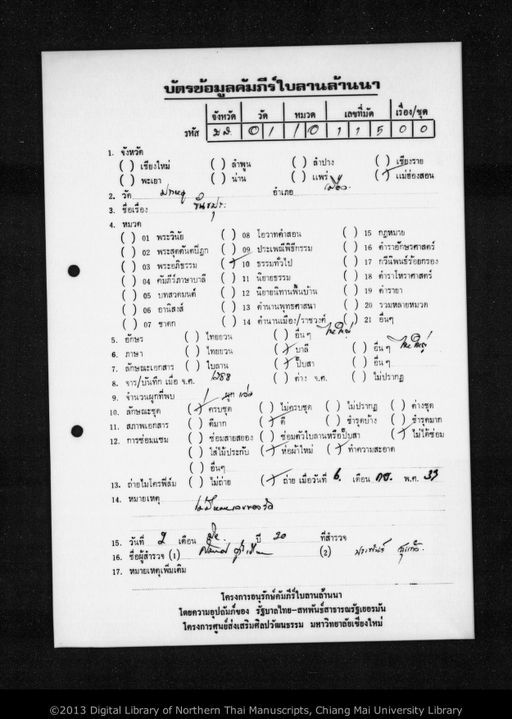 บัตรข้อมูลคัมภีร์ใบลานล้านนา
จังหวัด วัด หมวด เลขที่มัด เรื่อง/ชุด
รหัส ม.ส. 0 1 1 0 1 1 5 0 0
1. จังหวัด
( ) เชียงใหม่ ( ) ลำพูน ( ) ลำปาง ( ) เชียงราย
( ) พะเยา ( ) น่าน ( ) แพร่ (/) แม่ฮ่องสอน
2. วัด อำเภอ เมือง
3. ชื่อเรื่อง
4. หมวด
( ) 01 พระวินัย ( ) 08 โอวาทคำสอน ( ) 15 กฎหมาย
( ) 02 พระสุตตันตปิฎก ( ) 09 ประเพณีพิธีกรรม ( ) 16 ตำราอักษรศาสตร์
( ) 03 พระอภิธรรม (/) 10 ธรรมทั่วไป ( ) 17 กวีนิพนธ์ร้อยกรอง
( ) 04 คัมภีร์ภาษาบาลี ( ) 11 นิยายธรรม ( ) 18 ตำราโหราศาสตร์
( ) 05 บทสวดมนต์ ( ) 12 นิยายนิทานพื้นบ้าน ( ) 19 ตำรายา
( ) 06 อานิสงส์ ( ) 13 ตำนานพุทธศาสนา ( ) 20 รวมหลายหมวด
( ) 07 ชาดก ( ) 14 ตำนานเมือง/ราชวงศ์ ( ) 21 อื่นๆ
5. อักษร ( ) ไทยยวน ( ) อื่น ๆ ไทใหญ่
6. ภาษา ( ) ไทยยวน (/) บาลี ( ) อื่น ๆ ไทใหญ่
7. ลักษณะเอกสาร ( ) ใบลาน (/) ปั๊บสา ( ) อื่น ๆ
8. จาร/บันทึก เมื่อ จ.ศ. ( ) ค่าง จ.ศ. ( ) ไม่ปรากฏ
9. จำนวนผูกที่พบ 1 ผูก
10. ลักษณะชุด (/) ครบชุด ( ) ไม่ครบชุด ( ) ไม่ปรากฏ ( ) ต่างชุด
11. สภาพเอกสาร ( ) ดีมาก (/) ดี ( ) ชำรุดบ้าง ( ) ชำรุดมาก
12. การซ่อมแซม ( ) ซ่อมสายสยอง ( ) ซ่อมตัวใบลานหรือปั๊บสา (/) ไม่ได้ซ่อม
( ) ใส่ไม้ประกับ (/) ห่อผ้าใหม่ (/) ทำความสะอาด
( ) อื่นๆ
13. ถ่ายไมโครฟิล์ม ( ) ไม่ถ่าย (/) ถ่าย เมื่อวันที่ 6 เดือน กย. พ.ศ. 33
14. หมายเหตุ
15. วันที่ 2 เดือน ปี 30 ที่สำรวจ
16. ชื่อผู้สำรวจ (1) (2)
17. หมายเหตุเพิ่มเติม
โครงการอนุรักษ์คัมภีร์ใบลานล้านนา
โดยความอุปถัมภ์ของ รัฐบาลไทย-สหพันธ์สาธารณรัฐเยอรมัน
โครงการศูนย์ส่งเสริมศิลปวัฒนธรรม มหาวิทยาลัยเชียงใหม่
©2013 Digital Library of Northern Thai Manuscripts, Chiang Mai University Library